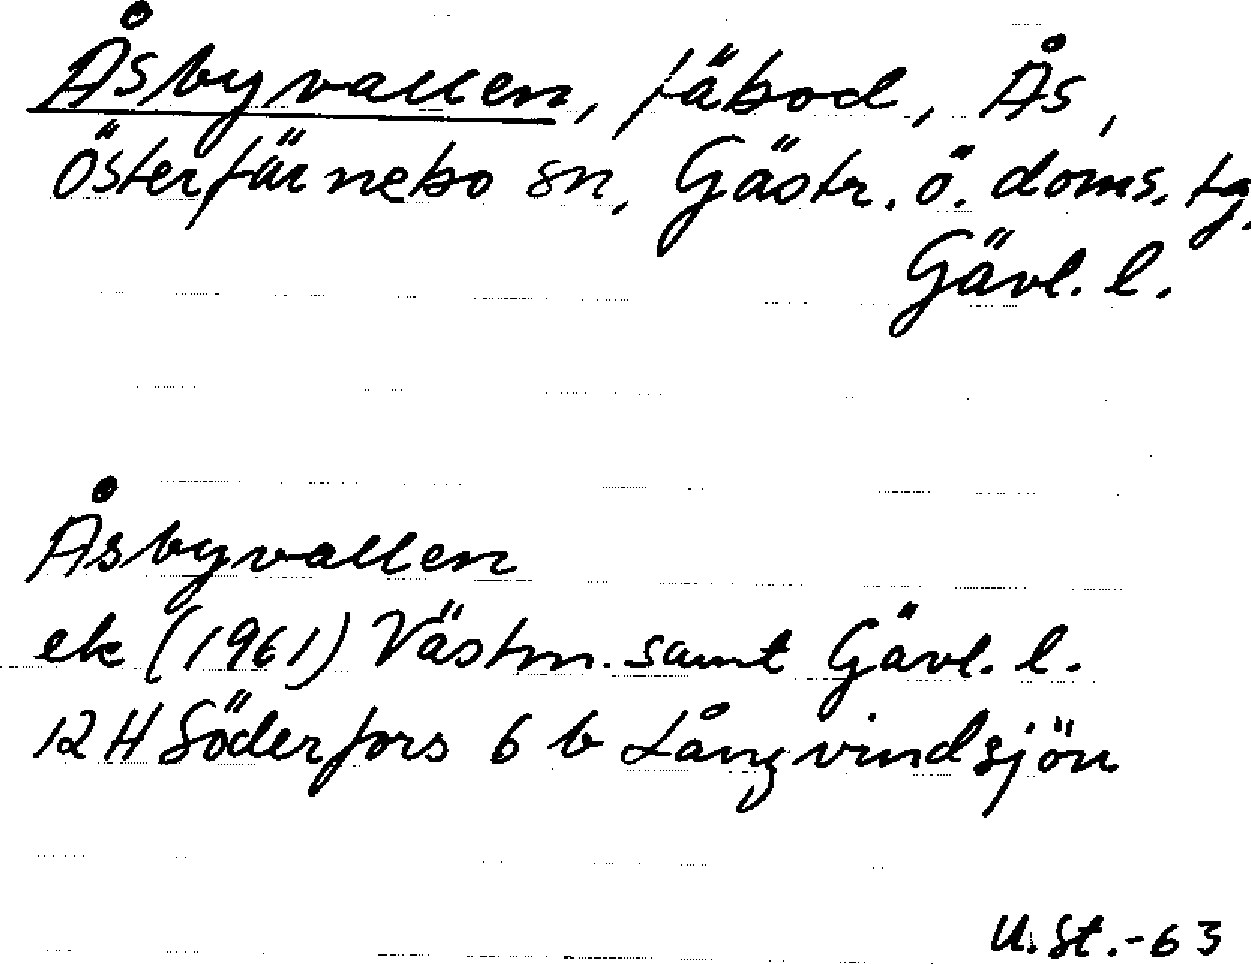 Åsbyvallen, fäbod, Ås,
Österfärnebo sn, Gästr. ö. doms. tg.
Gävl. l.
Åsbyvallen
ek (1961) Västm. samt Gävl. l.
12 H Söderfors 6 b Långvindsjön
U. St.-63